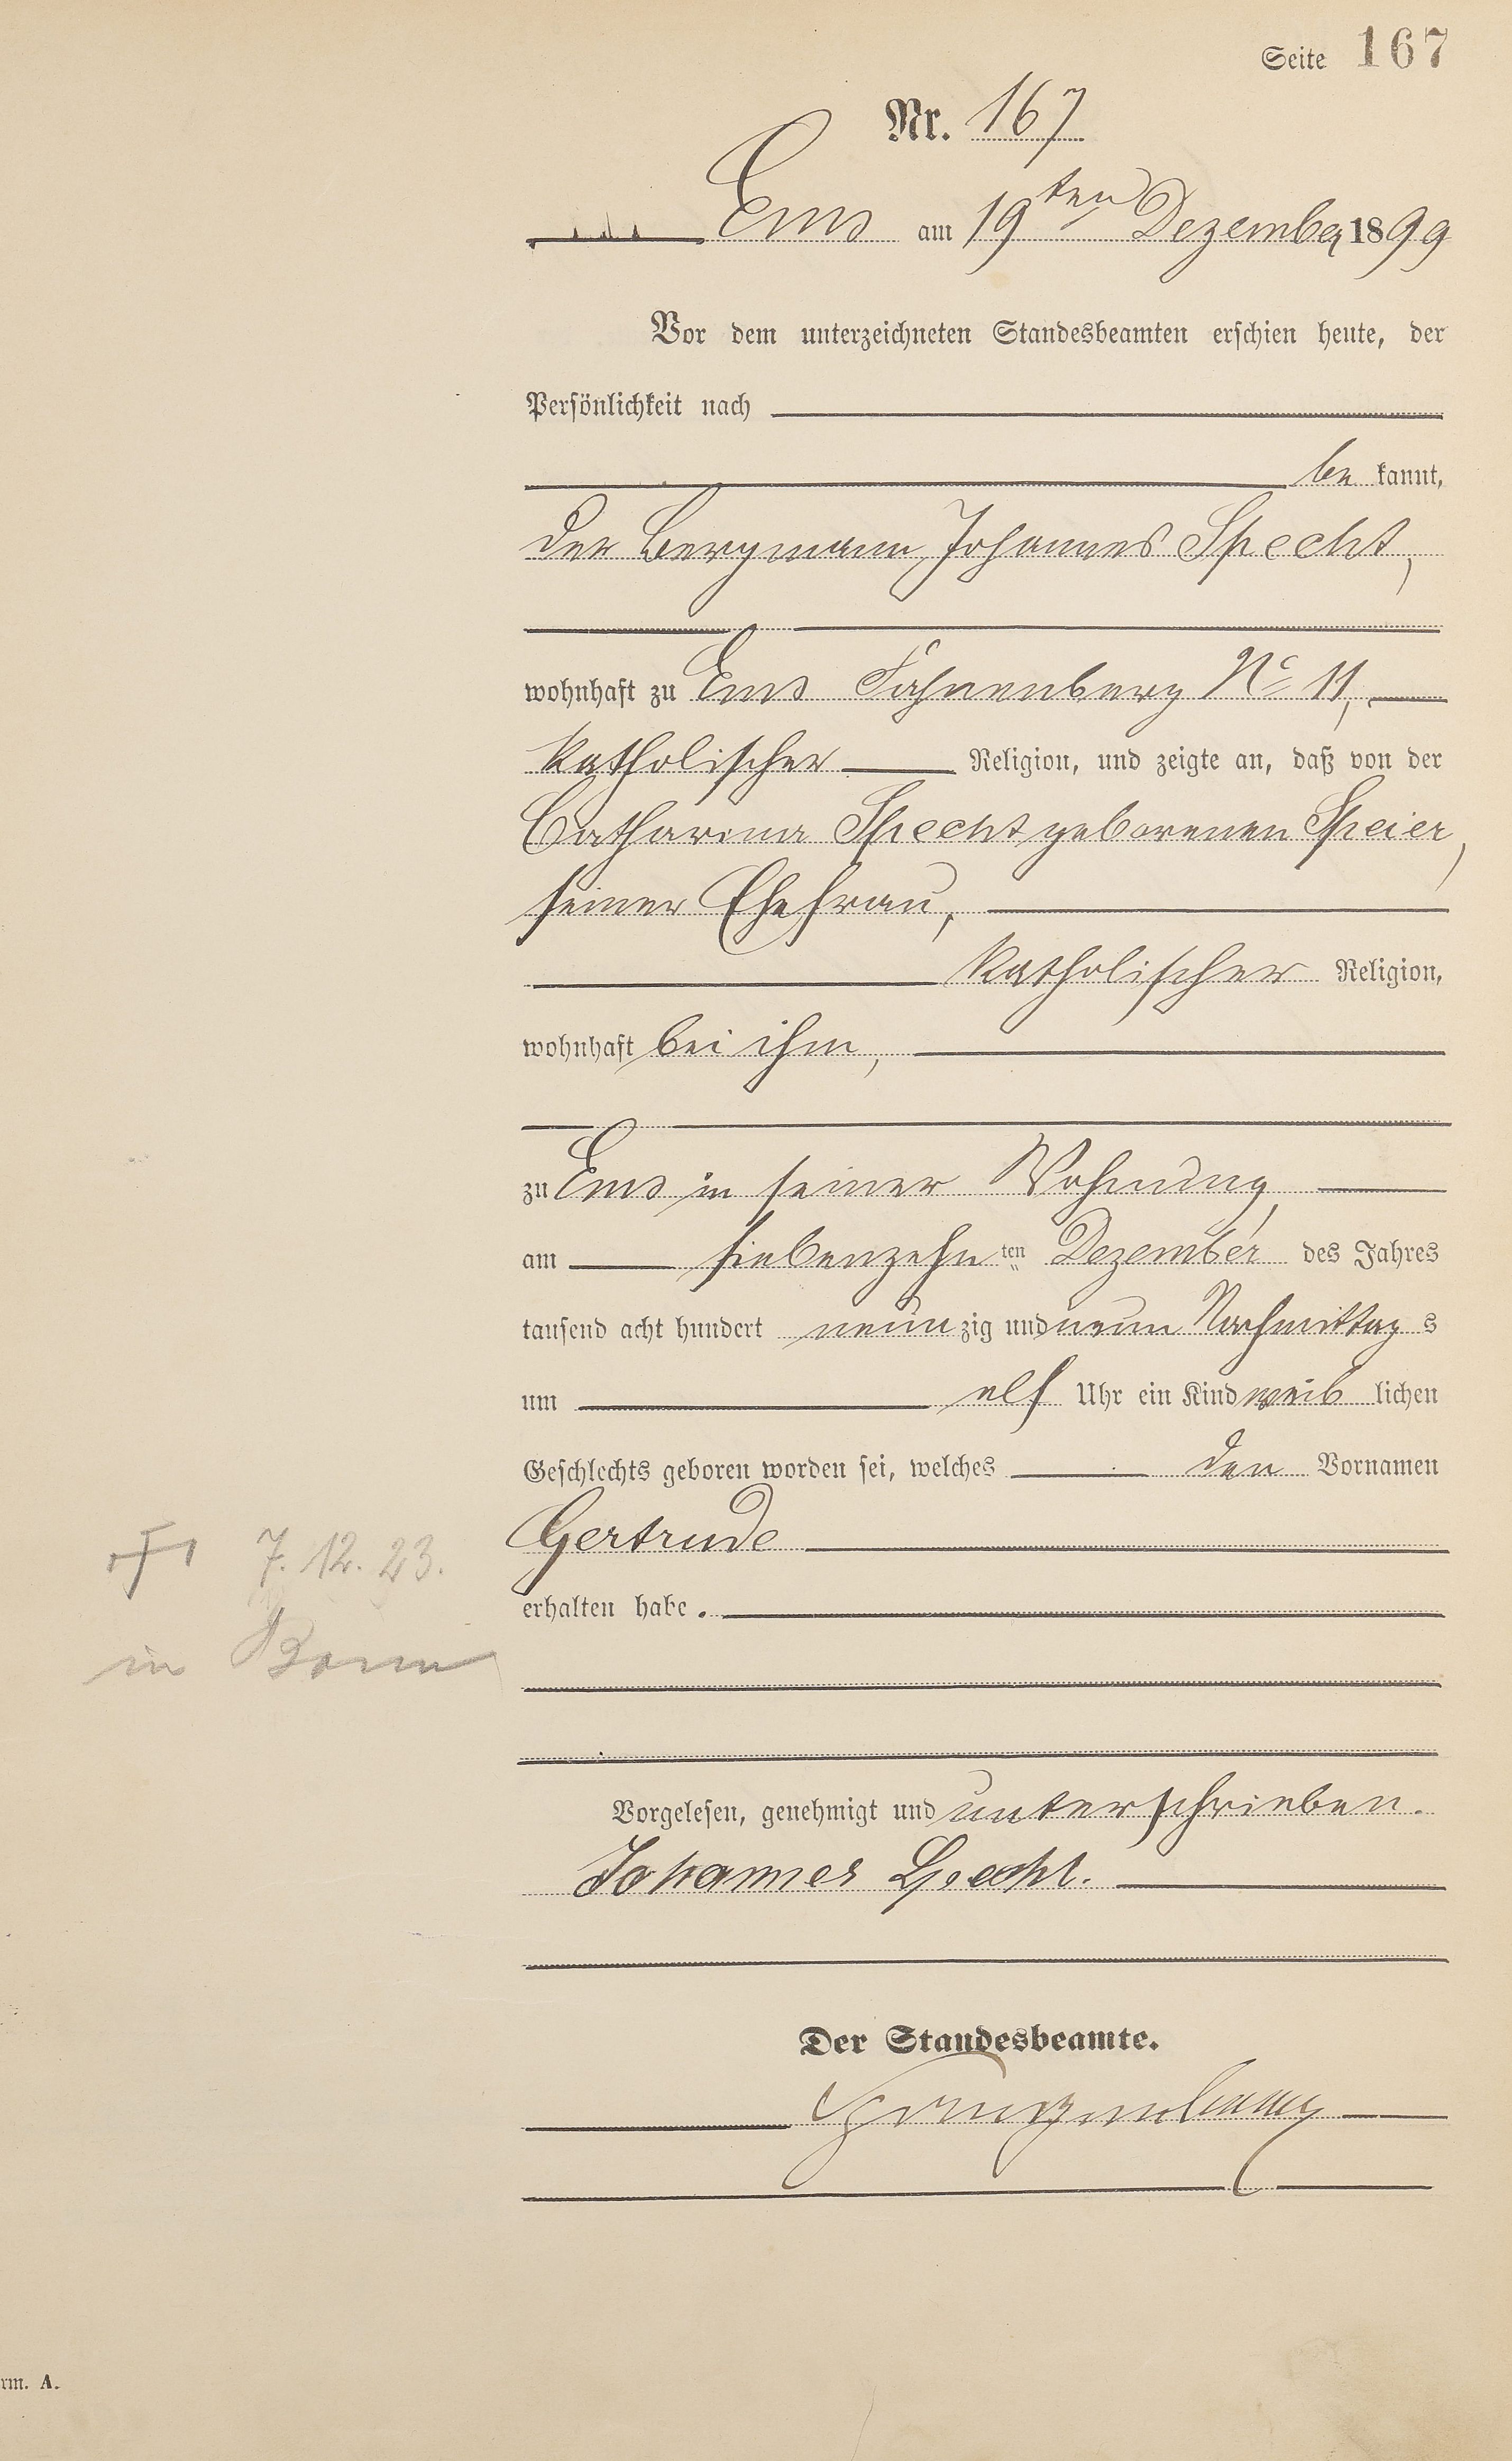 Seite 167
Nr. 167
Ems am 19ten Dezember 1899
Vor dem unterzeichneten Standesbeamten erschien heute, der
Persönlichkeit nach
be kannt,
der Bergmann Johannes Specht,
wohnhaft zu Ems No 11,
katholischer Religion, und zeigte an, daß von der
Catharina Specht geborenen Speier,
seiner Ehefrau,
katholischer Religion,
wohnhaft bei ihm,
zu Ems in seiner Wohnung,
am siebenzehn ten Dezember des Jahres
tausend acht hundert neun zig und neun Nachmittag s
um elf Uhr ein Kind weib lichen
Geschlechts geboren worden sei, welches den Vornamen
Gertrude
† 7. 12. 23.
erhalten habe.
in Bonn
Vorgelesen, genehmigt und unterschrieben.
Johannes Specht.
Der Standesbeamte.
rm. A.